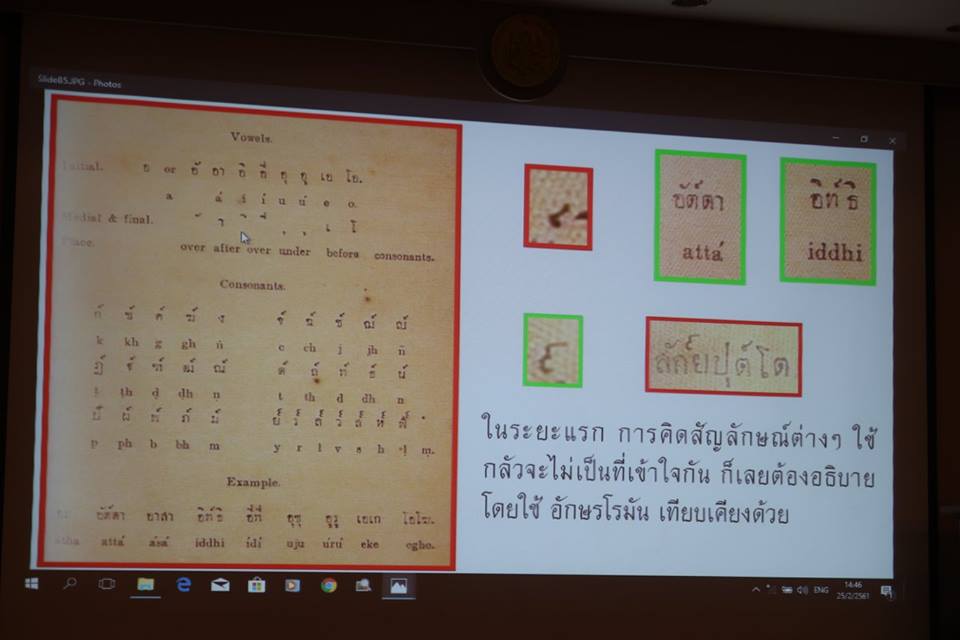 Slide85.JPG - Photos
Vowels.
Initial. อ or อั อา อิ อี อุ อู เอ โอ.
a á i í u ú e o.
Medial & final. ั า ิ ี ุ ู เ โ
Place. over after over under before consonants.
Consonants.
k kh g gh ṅ c ch j jh ñ
ṭ ṭh ḍ ḍh ṇ t th d dh n
p ph b bh m y r l v s h ḷ ṃ.
Example.
อัต์ตา อาสา อิท์ธิ อีที อุชุ อูรู เอเก โอโฆ.
atha attá ásá iddhi ídí uju úrú eke ogho.
อัต์ตา
attá
อิท์ธิ
iddhi
สัก์ยปุต์โต
ในระยะแรก การคิดสัญลักษณ์ต่างๆ ใช้
กลัวจะไม่เป็นที่เข้าใจกัน ก็เลยต้องอธิบาย
โดยใช้ อักษรโรมัน เทียบเคียงด้วย
ENG
14:46
25/2/2561